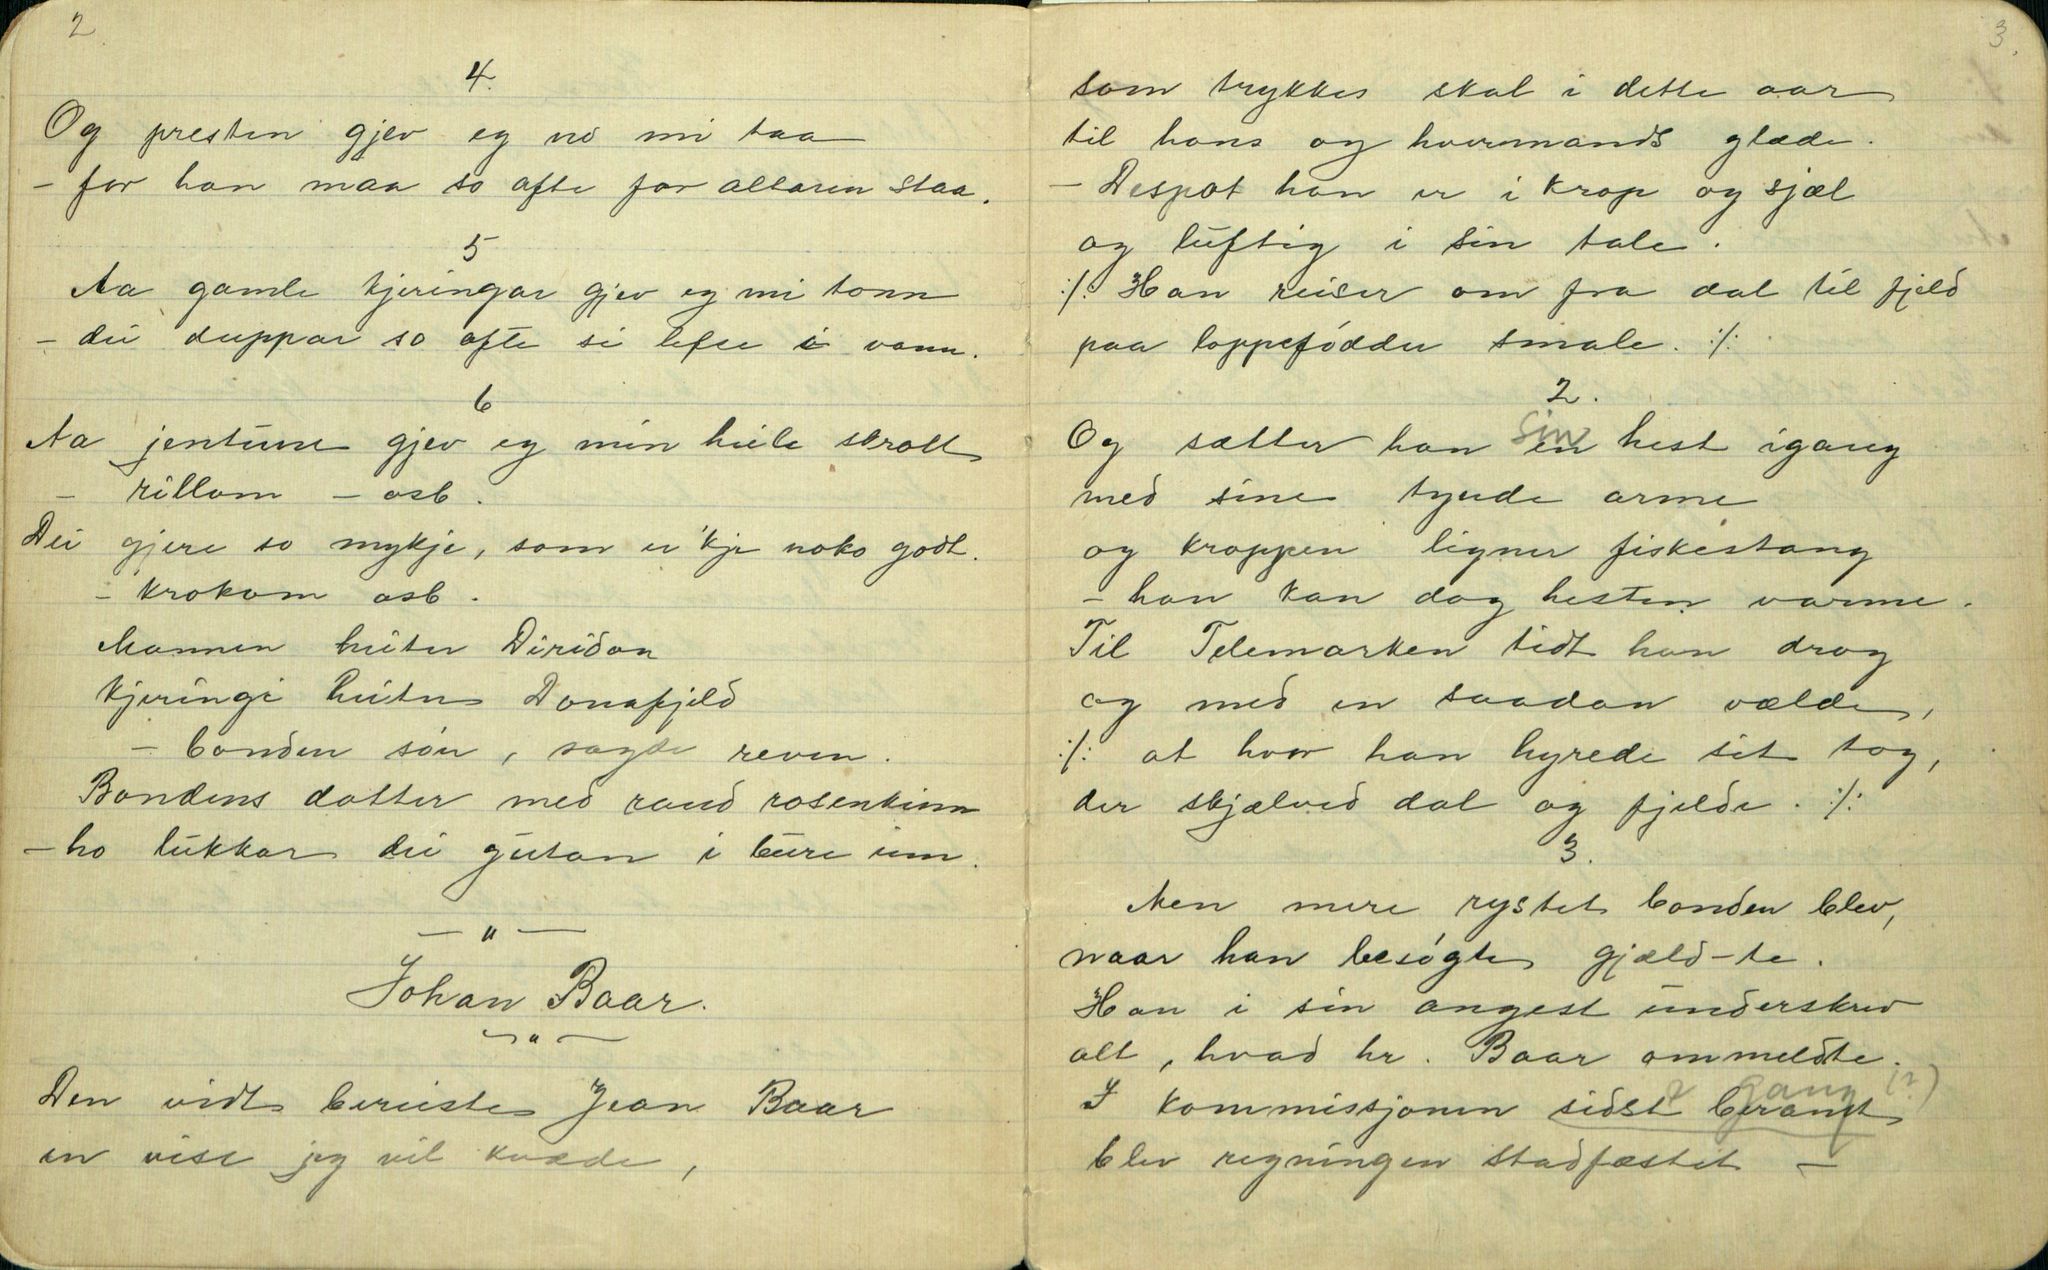 2
4.
Og presten gjev eg no mi taa
- for han maa so ofte for altaren staa.
5
Aa gamle kjeringar gjev eg mi tonn
- dei duppar so ofte si lefse i vann.
6
Aa jentune gjev eg min heile skrott
- rillom - osb.
Dei gjere so mykje, som er 'kje noko godt.
- krokom osb.
Mannen heiter Diridon
Kjeringi heiter Donafjeld
- bonden søn, sagde reven.
Bondens dotter med raud rosenkinn
- ho lukkar dei gutan i bure inn.
- " -
Johan Baar.
- " -
Den vidt bereiste Jean Baar
en vise jeg vil kvæde,
3.
som trykkes skal i dette aar
til hans og hvermands glæde.
- Despot han er i krop og sjæl
og luftig i sin tale.
:/: Han reiser om fra dal til fjeld
paa loppefødder smale. :/:
2.
Og sætter han en sin hest igang
med sine tynde arme
og kroppen ligner fiskestang
- han kan dog hesten varme.
Til Telemarken tidt han drog
og med en saadan vælde,
:/: at hvor han hyrede sit tog,
der skjælved dal og fjelde. :/:
3.
Men mere rystet bonden blev,
naar han besøgte gjæld-te.
Han i sin angest underskrev
alt, hvad hr. Baar ommeldte.
I kommissjonen sidst beramt gang (?)
blev regningen stadfæstet -